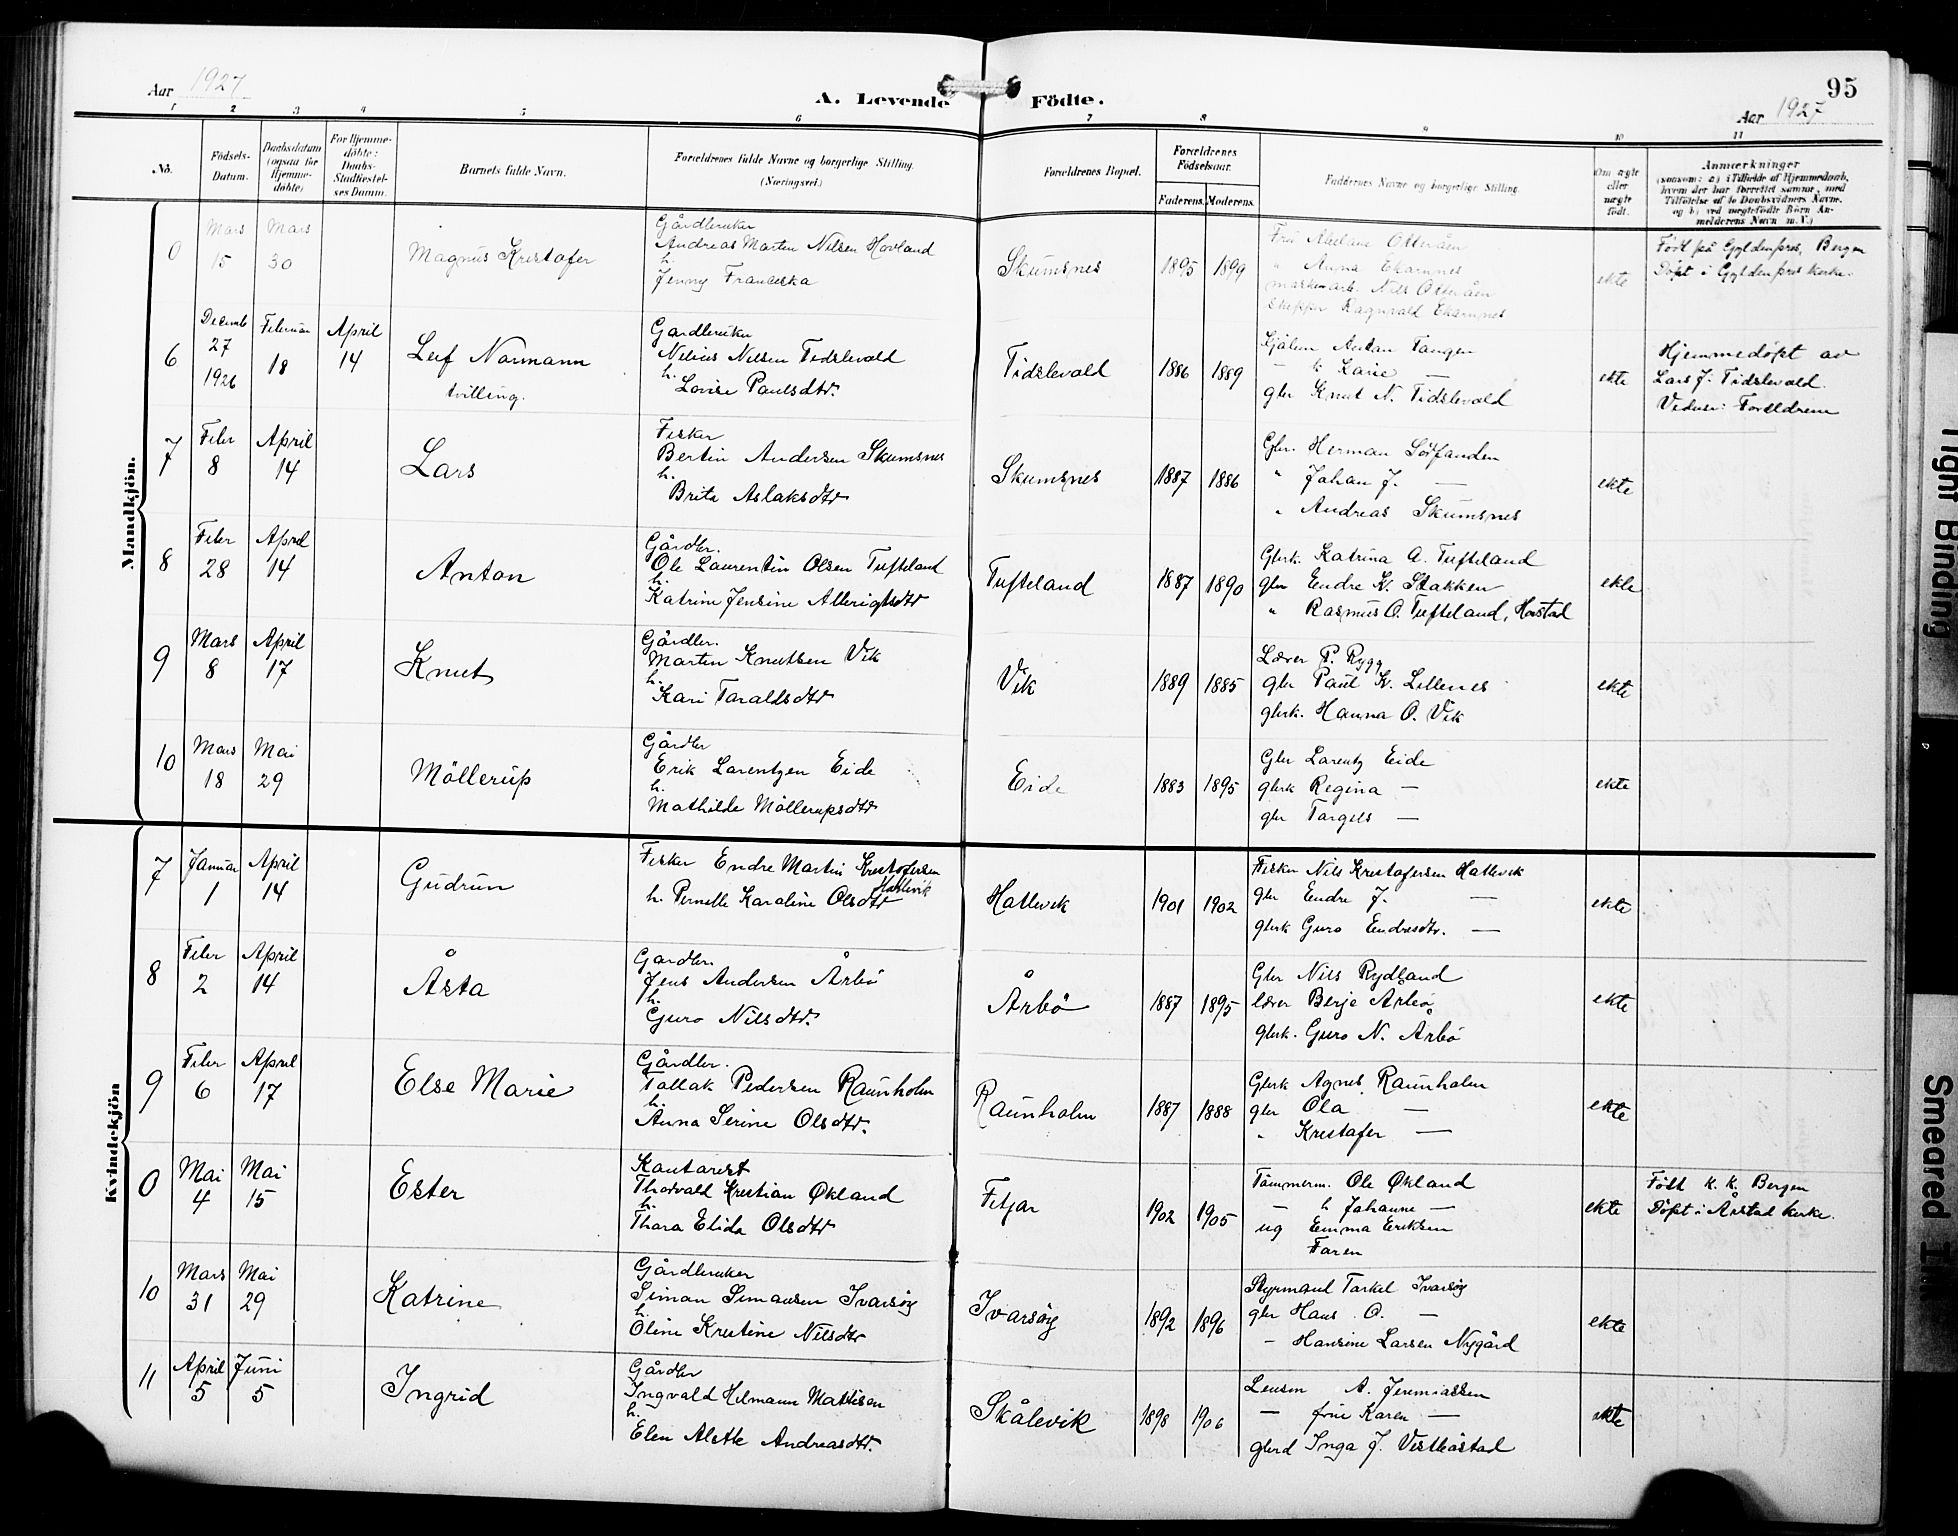 Aar 1927
A. Levende Födte.
95
Aar 1927
1 2 3 4 5 6 7 8 9 10 11
No.
Födsels-Datum.
Daabsdatum (ogsaa for Hjemme-döbte)
For Hjemme-döbte: Daabs-Stadfæstel-ses Datum.
Barnets fulde Navn.
Forældrenes fulde Navne og borgerlige Stilling.
(Næringsvei.)
Forældrenes Bopæl.
Forældrenes Födselsaar.
Faderens. Moderens.
Faddernes Navne og borgerlige Stilling.
Om ægte eller uægte födt.
Anmærkninger
(saasom: a) i Tilfælde af Hjemmedaab,
hvem der har forrettet samme, med
Tilföielse af to Daabsvidners Navne,
og b) ved uægtefödte Börn An-
melderens Navn m. V.)
Mandkjön.
0 Mars 15 Mars 30
Magnus Kristofer
Gårdbruker
Andreas Martin Nilsen Hovland
h.
Jenny Franciska
Skumsnes 1895 1899
Fru Abelane Otteråen
" Anna Ekarnnes
maskinarb. Nils Otteråen
Skipper Ragnvald Ekarnnes
ekte
Född på Gyldenpris, Bergen
Döpt i Gyldenpris kirke.
6 Decemb 27 1926 Februar 18 April 14
Leif Normann
tvilling.
Gardbruker
Nelius Nilsen Tidslevold
h.
Lovise Paulsdtr.
Tidslevold 1886 1889
Anton Tangen
— h Karie —
gbr Knut N. Tidslevold
ekte
Hjemmedöpt av
Lars J. Tidslevold.
Vidner: Foreldrene
7 Febr 8 April 14
Lars
Fisker
Bertin Andersen Skumsnes
h.
Brita Aslaksdtr
Skumsnes 1887 1886
Gbr. Herman Sörfonden
" Johan J. —
" Andreas Skumsnes
ekte
8 Febr 28 April 14
Anton
Gårdbr.
Ole Laurentin Olsen Tufteland
h.
Katrine Jensine Albrigtsdtr
Tufteland 1887 1890
Gbrk. Katrina A. Tufteland
gbr Endre K. Stakken
" Rasmus O. Tufteland, Horstad
ekte
9 Mars 8 April 17
Knut
Gårdbr.
Martin Knutsen Vik
h.
Kari Taraldsdtr
Vik 1889 1885
Lærer P. Rygg
gbr Paul K. Lillenes
gbrk. Hanna O. Vik
ekte
10 Mars 18 Mai 29
Möllerup
Gårdbr
Erik Larentzen Eide
h.
Mathilde Möllerupsdtr
Eide 1883 1895
Gbr Larentz Eide
gbrk Regina —
gbr Torgels —
ekte
Kvindekjön
7 Januar 1 April 14
Gudrun
Fisker Endre Martin Kristofersen
Hatlevik
h. Pernille Karoline Olsdtr
Hatlevik 1901 1902
Fisker Nils Kristofersen Hatlevik
gbr Endre J. —
gbrk Guro Endresdtr. —
ekte
8 Febr 2 April 14
Åsta
Gardbr.
Jens Andersen Årbö
h.
Guro Nilsdtr.
Årbö 1887 1895
Gbr Nils Rydland
lærer Berje Arbö
gbrk. Guro N. Årbö
ekte
9 Febr 6 April 17
Else Marie
Gårdbr.
Tollak Pedersen Raunholm
h.
Anna Serine Olsdtr.
Raunholm 1887 1888
Gbrk Agnes Raunholm
gbr Ola —
" Kristofer —
ekte
0 Mai 4 Mai 15
Ester
Kontorist
Thorvald Kristian Økland
h.
Thora Elida Olsdtr
Fitjar 1902 1905
Tömmerm. Ole Økland
— h Johanne —
ug Emma Eriksen
Faren
ekte
Född K. K. Bergen
Döpt i Årstad kirke.
10 Mars 31 Mai 29
Katrine
Gårdbruker
Simon Simonsen Ivarsöy
h.
Oline Kristine Nilsdtr
Ivarsöy 1892 1896
Styrmand Torkel Ivarsöy
gbr Hans O. —
— Hansine Larsen Nygård
ekte
11 April 5 Juni 5
Ingrid
Gårdbr
Ingvald Helmann Mattisen
h.
Elen Alette Andreasdtr.
Skålevik 1898 1906
Lensm A. Jeremiassen
— frue Karen —
gbrd Inga J. Vestböstad
ekte
Tight Binding
Smeared Ink